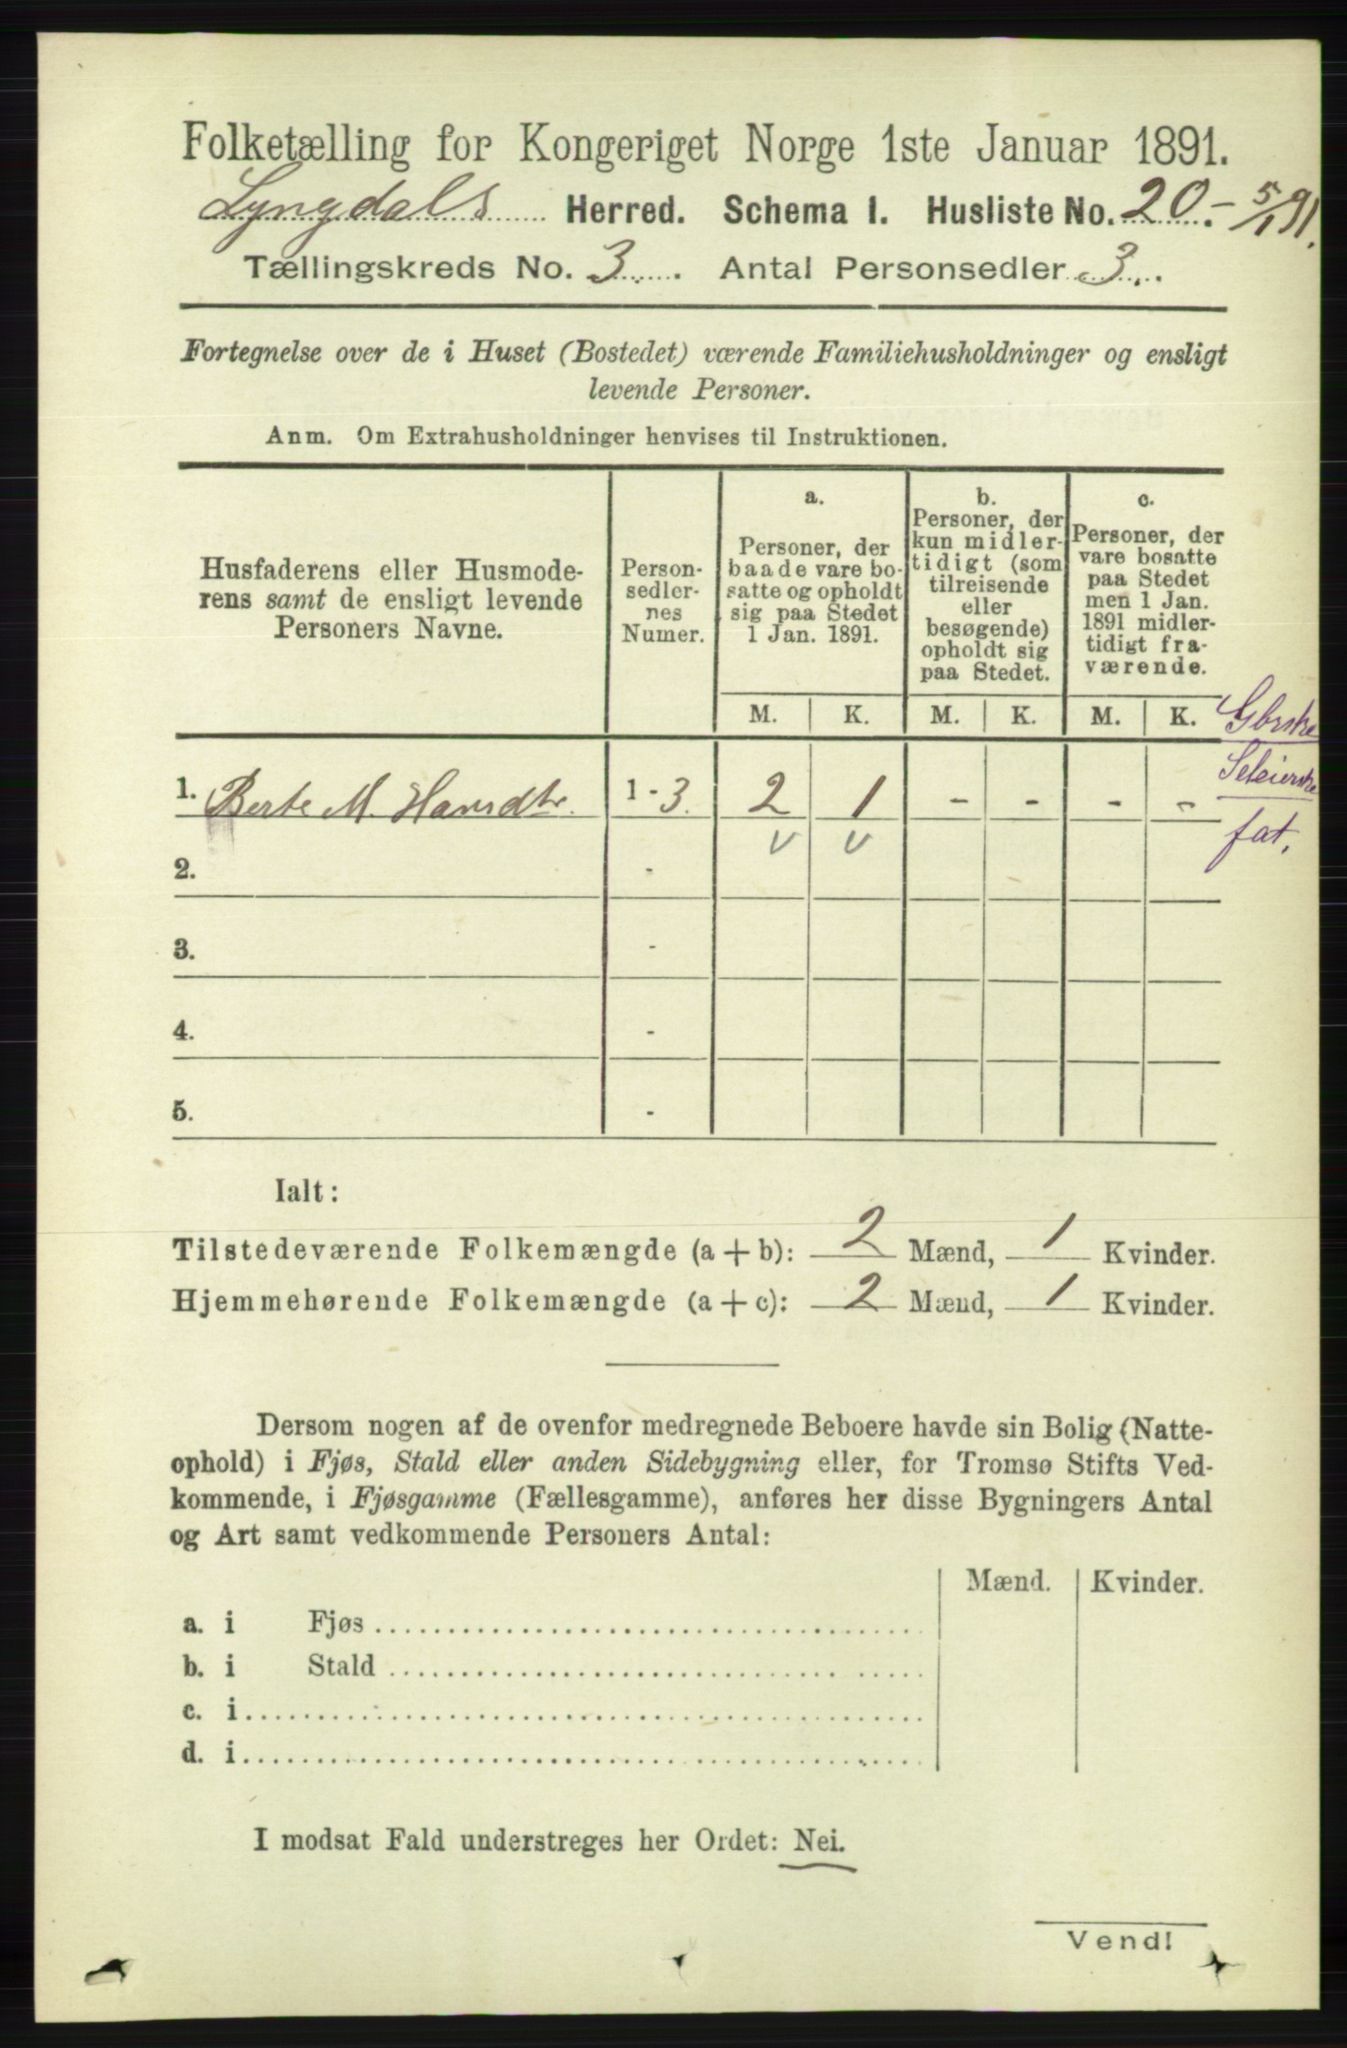 Folketælling for Kongeriget Norge 1ste Januar 1891.
Lyngdals Herred. Schema I. Husliste No. 20.- 5/1 91.
Tællingskreds No. 3. Antal Personsedler 3.
Fortegnelse over de i Huset (Bostedet) værende Familiehusholdninger og ensligt
levende Personer.
Anm. Om Extrahusholdninger henvises til Instruktionen.
Husfaderens eller Husmode-
rens samt de ensligt levende
Personers Navne.
Person-
sedler-
nes
Numer.
a.
Personer, der
baade vare bo-
satte og opholdt
sig paa Stedet
1 Jan. 1891.
b.
Personer, der
kun midler-
tidigt (som
tilreisende
eller
besøgende)
opholdt sig
paa Stedet.
c.
Personer, der
vare bosatte
paa Stedet
men 1 Jan.
1891 midler-
tidigt fra-
værende.
M. K. M. K. M. K.
1. Berte M. Hansdtr. 1 - 3. 2 1 - - - -
v v
fat.
2. -
3. -
4. -
5. -
Ialt:
Tilstedeværende Folkemængde (a + b): 2 Mænd, 1 Kvinder.
Hjemmehørende Folkemængde (a + c): 2 Mænd, 1 Kvinder.
Dersom nogen af de ovenfor medregnede Beboere havde sin Bolig (Natte-
ophold) i Fjøs, Stald eller anden Sidebygning eller, for Tromsø Stifts Ved-
kommende, i Fjøsgamme (Fællesgamme), anføres her disse Bygningers Antal
og Art samt vedkommende Personers Antal:
Mænd. Kvinder.
a. i Fjøs
b. i Stald
c. i
d. i
I modsat Fald understreges her Ordet: Nei.
Vend!